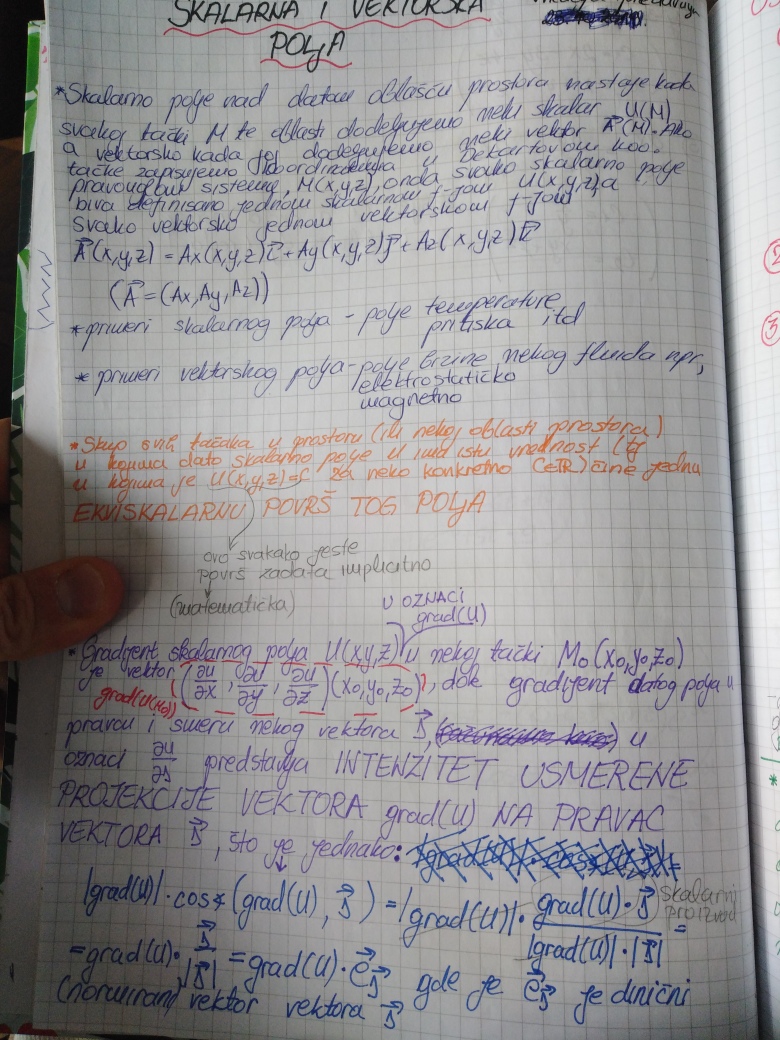 SKALARNA I VEKTORSKA
POLJA
*Skalarno polje nad datom oblašću prostora nastaje kada
svakoj tački M te oblasti dodeljujemo neki skalar U(M)
a vektorsko kada joj dodeljujemo neki vektor A⃗(M). Ako
tačke zapisujemo koordinatama u Dekartovom koo.
pravouglom sistemu, M(x,y,z), onda svako skalarno polje
biva definisano jednom skalarnom f-jom U(x,y,z), a
svako vektorsko jednom vektorskom f-jom
A⃗(x,y,z) = Ax(x,y,z)i⃗+Ay(x,y,z)j⃗+Az(x,y,z)k⃗
(A⃗=(Ax,Ay,Az))
*primeri skalarnog polja - polje temperature,
pritiska itd
* primeri vektorskog polja-polje brzine nekog fluida npr,
elektrostatičko
magnetno
*Skup svih tačaka u prostoru (ili nekoj oblasti prostora)
u kojima dato skalarno polje U ima istu vrednost (tj
u kojima je U(x,y,z)=C za neko konkretno C∈R) čine jednu
EKVISKALARNU POVRŠ TOG POLJA
ovo svakako jeste
površ zadata implicitno
(matematička)
U OZNACI
grad(U)
* Gradijent skalarnog polja U(x,y,z) u nekoj tački M₀(x₀,y₀,z₀)
je vektor (∂u/∂x, ∂u/∂y, ∂u/∂z)(x₀,y₀,z₀), dok gradijent datog polja u
grad(U(M₀))
pravcu i smeru nekog vektora s⃗, u
oznaci ∂u/∂s predstavlja INTENZITET USMERENE
PROJEKCIJE VEKTORA grad(U) NA PRAVAC
VEKTORA s⃗, što je jednako:
|grad(U)|·cos∢(grad(U), s⃗) = |grad(U)|· grad(U)·s⃗ / |grad(U)|·|s⃗| =
skalarni
proizvod
=grad(U)· s⃗/|s⃗| = grad(U)·e⃗s⃗ gde je e⃗s⃗ jedinični
(normiran) vektor vektora s⃗